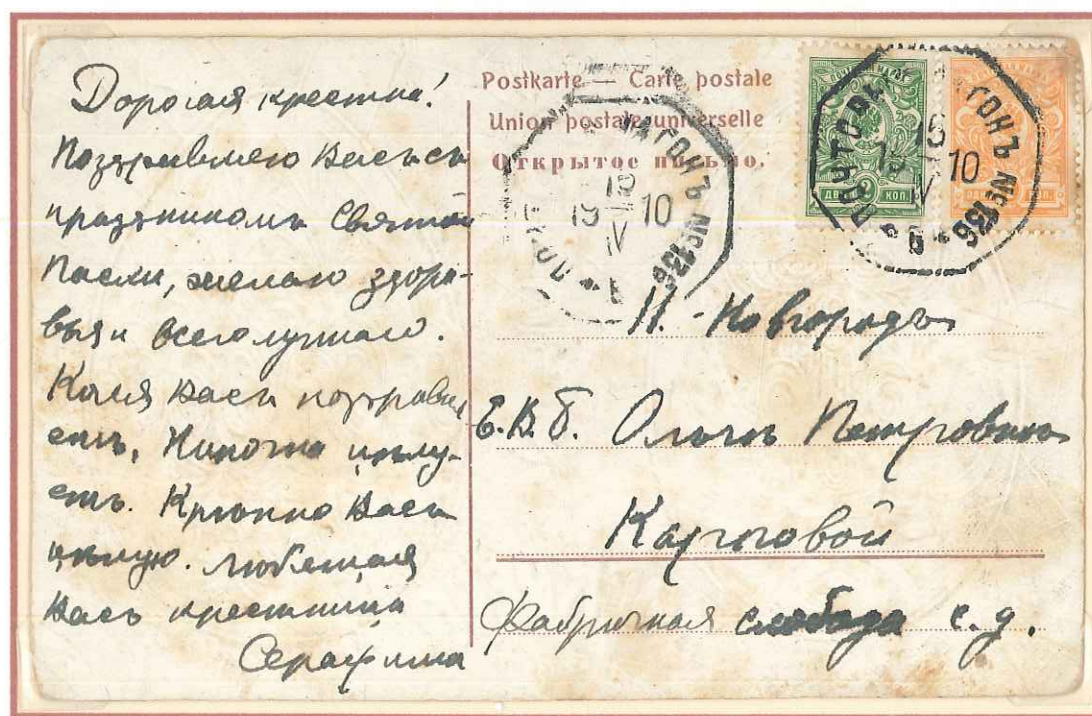 Дорогая крестна!
Поздравляю Васъ съ
праздникомъ Святой
Пасхи, желаю здоро-
вья и всего лучшаго.
Коля Васъ поздравля
етъ, Ниночка цѣлу-
етъ. Крѣпко Васъ
цѣлую. Любящая
Васъ крестница
Серафима
Postkarte — Carte postale
Union postale universelle
Открытое письмо.
ПОЧТОВЫЙ ВАГОНЪ №156
15
19 10
IV
* Б *
ВАГОНЪ №156
15
19 10
IV
ДВѢ 2 КОП.
Н.-Новгородъ
Е.В.Б. Ольгѣ Петровнѣ
Фабричная слобода с. д.